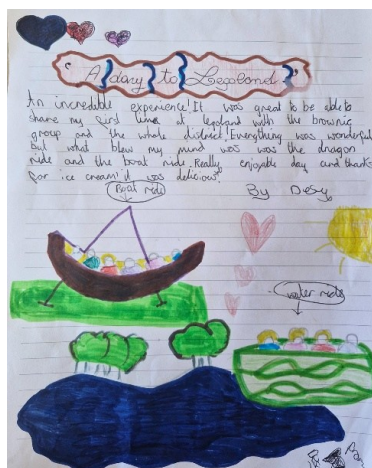 A day to Legoland
An incredible experience! It was great to be able to
share my first time at legoland with the brownie
group and the whole district! Everything was wonderful
but what blew my mind was was the dragon
ride and the boat ride. Really enjoyable day and thanks
for ice cream it was delicious.
By Desy
Boat ride
water ride